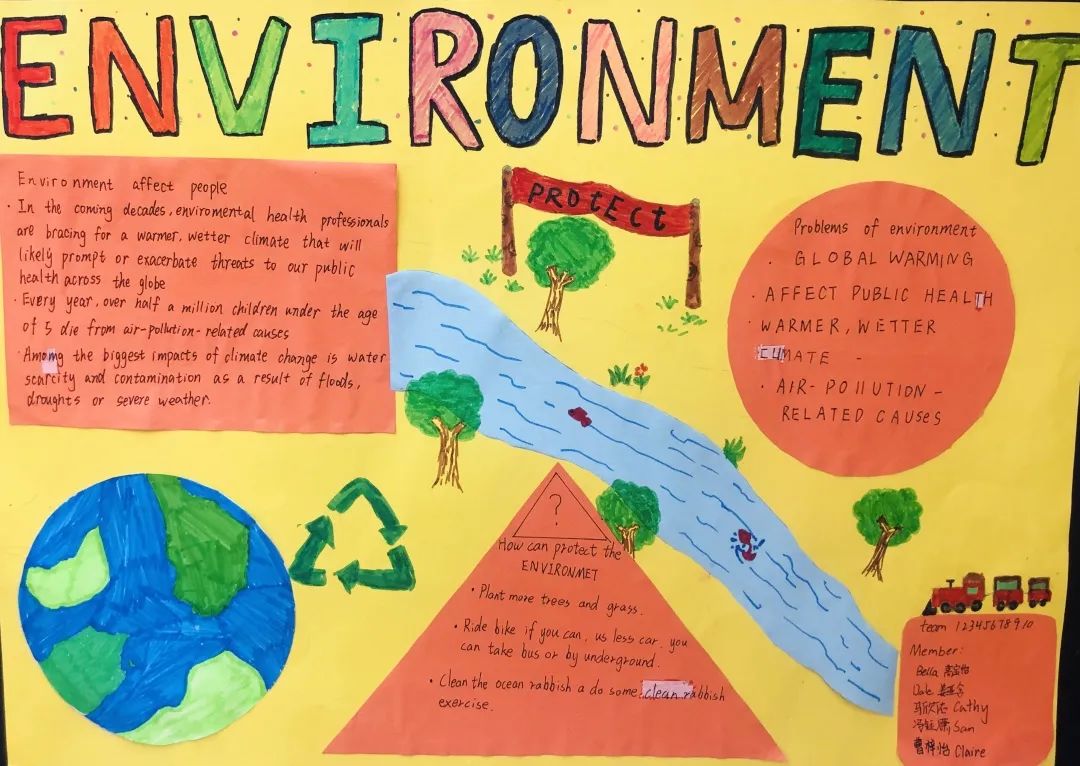 ENVIRONMENT
Environment affect people
· In the coming decades, enviromental health professionals
are bracing for a warmer, wetter climate that will
likely prompt or exacerbate threats to our public
health across the globe
· Every year, over half a million children under the age
of 5 die from air-pollution-related causes
· Among the biggest impacts of climate change is water
scarcity and contamination as a result of floods,
droughts or severe weather.
PROtECt
Problems of environment
· GLOBAL WARMING
· AFFECT PUBLIC HEALTH
· WARMER, WETTER
CLIMATE -
· AIR-POllUTION-
RELATED CAUSES
?
How can protect the
ENVIRONMET
· Plant more trees and grass.
· Ride bike if you can, us less car, you
can take bus or by underground.
· Clean the ocean rabbish a do some clean rabbish
exercise.
team 12345678910
Member:
Bella
Dale
Cathy
San
曹梓怡 Claire